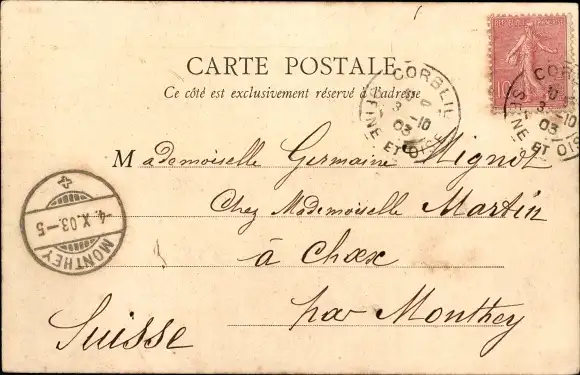 RÉPUBLIQUE FRANÇAISE
10
CARTE POSTALE
Ce côté est exclusivement réservé à l'adresse
CORBEIL
3 -10
03
SEINE ET OISE
CORB
3 -10
03
SEINE ET OIS
Mademoiselle Germaine Mignot
Chez Mademoiselle Martin
à Choex
par Monthey
Suisse
-4.X.03.-5
MONTHEY